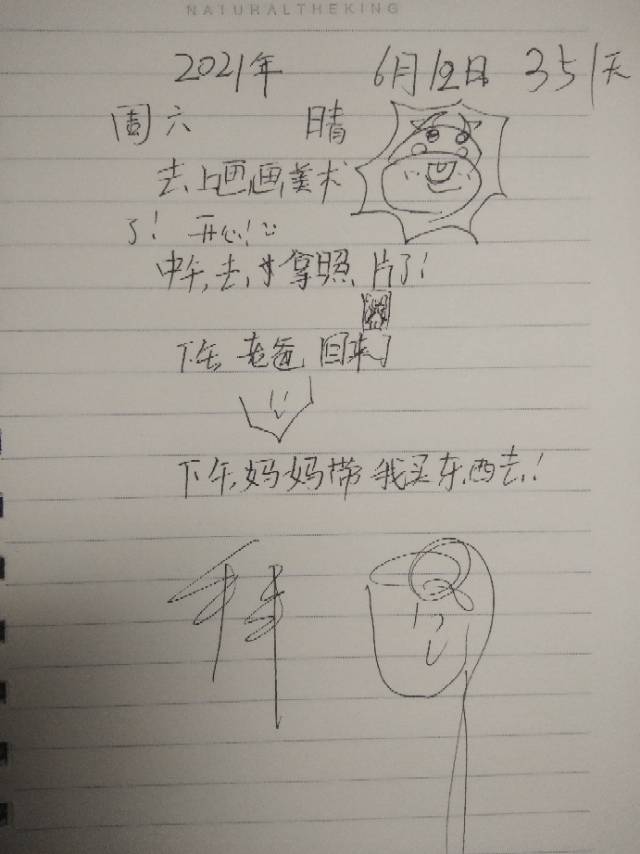 NATURALTHEKING
2021年 6月12日 351天
周六 晴
去上画画美术
了! 开心!
中午,去拿照片了!
下午,老爸回来了
下午,妈妈带我买东西去,!
拜